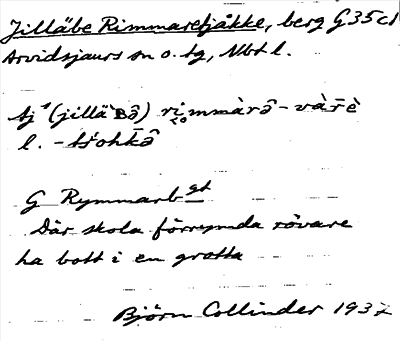 Jilläbe Rimmaretjåkke, berg G35c1
Arvidsjaurs sn o. tg, Nbt l.
tj¹ (jillä`Bə̂) rimmàrə̂ - vàr̄è
l. - tšohkə̂
G Rymmarbgt
Där skola förrymda rövare
ha bott i en grotta
Björn Collinder 1937